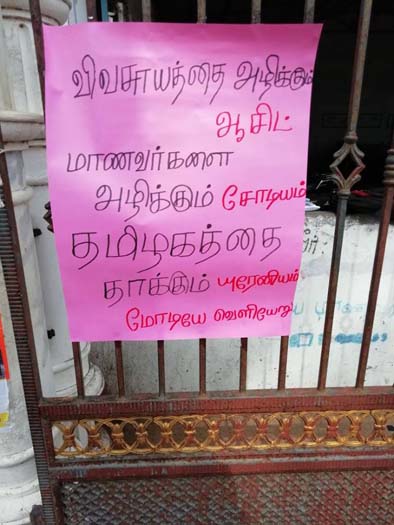 விவசாயத்தை அழிக்கும்
ஆசிட்
மாணவர்களை
அழிக்கும் சோடியம்
தமிழகத்தை
தாக்கும் யுரேணியம்
மோடியே வெளியேறு